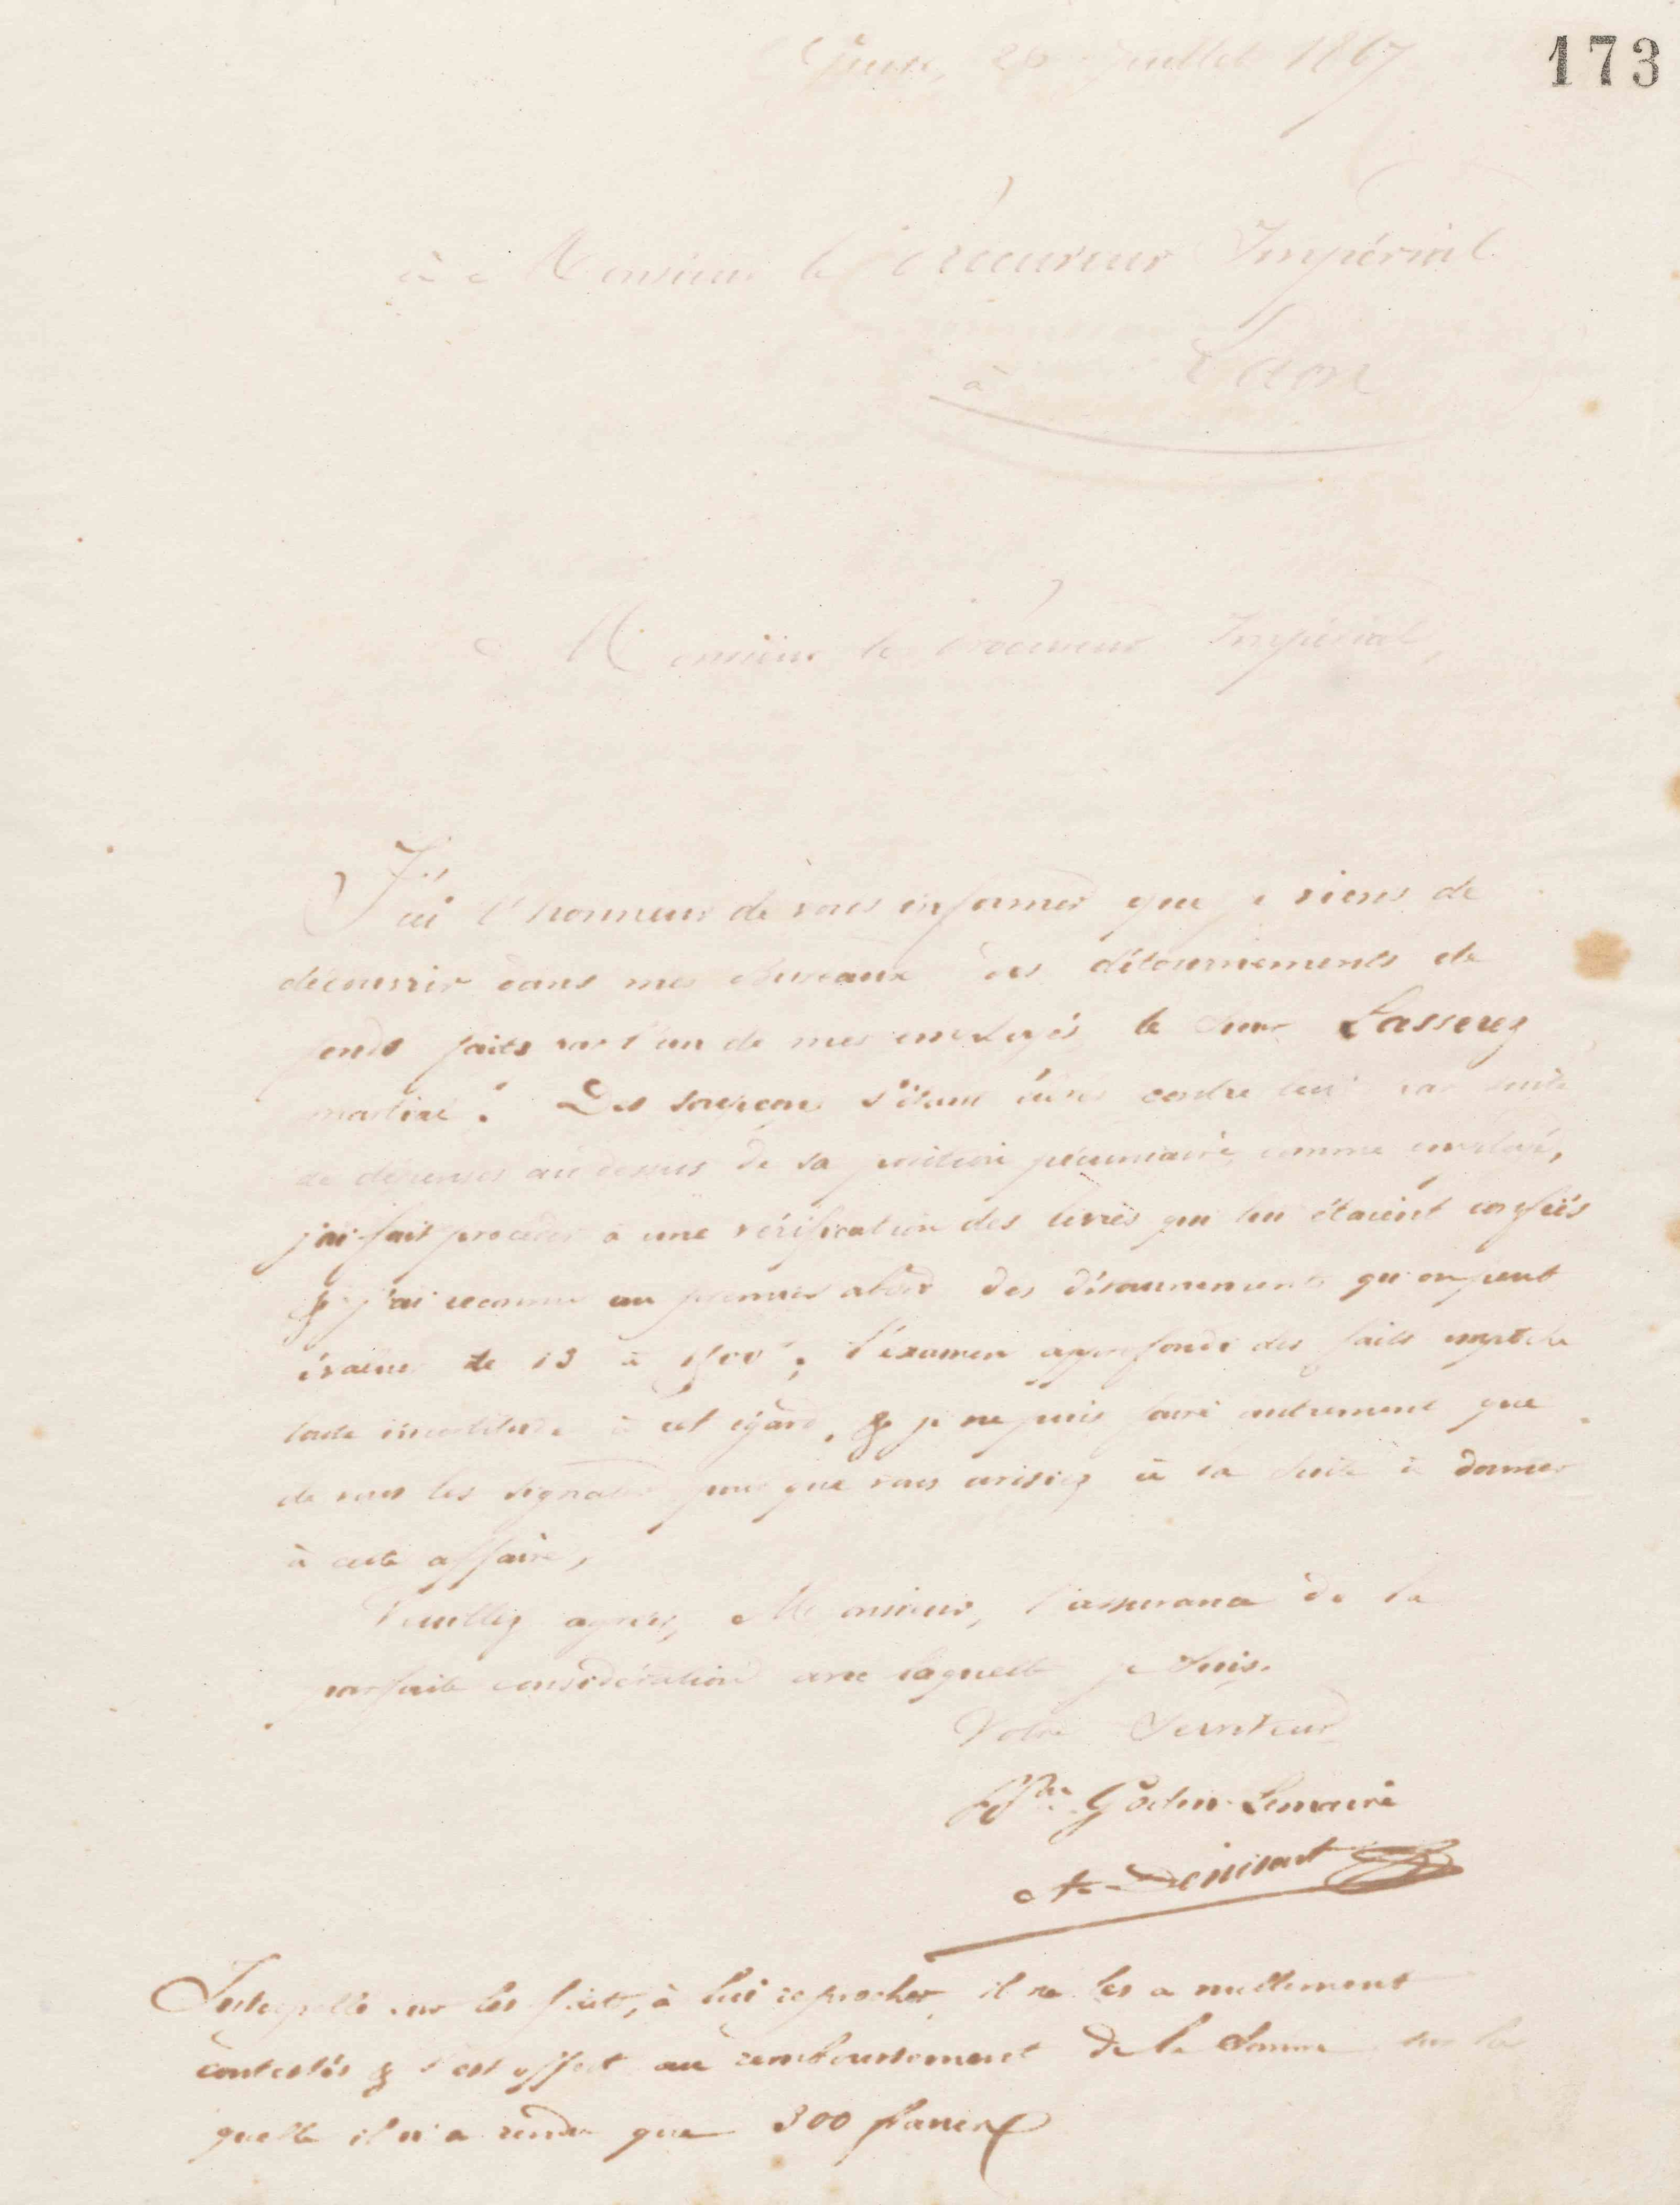 173
Guise, 28 Juillet 1867
à Monsieur le Procureur Impérial
à Laon
Monsieur le Procureur Impérial,
J'ai l'honneur de vous informer que je viens de
découvrir dans mes bureaux des détournements de
fonds faits par l'un de mes employés le sieur Lasserez
. Des soupçons s'étant élevés contre lui par suite
de dépenses au dessus de sa position pécuniaire comme employé,
j'ai fait procéder à une vérification des livres qui lui étaient confiés
& j'ai reconnu au premier abord des détournements qu'on peut
évaluer de 13 à 1500 f; l'examen approfondi des faits
toute incertitude à cet égard, & je ne puis faire autrement que
de vous les signaler pour que vous avisiez à la suite à donner
à cette affaire,
Veuillez agréer, Monsieur, l'assurance de la
parfaite considération avec laquelle je suis,
Votre Serviteur
Godin-Lemaire
A. Denisart
Interpellé sur les faits, à lui reprocher, il ne les a nullement
contestés & s'est offert au remboursement de la Somme sur la
quelle il n'a rendu que 300 francs